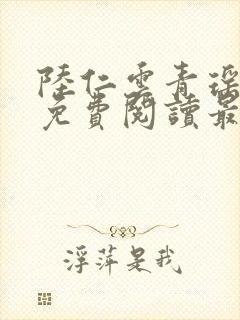 陸仁雲青瑶
免費閱讀最
浮萍是我